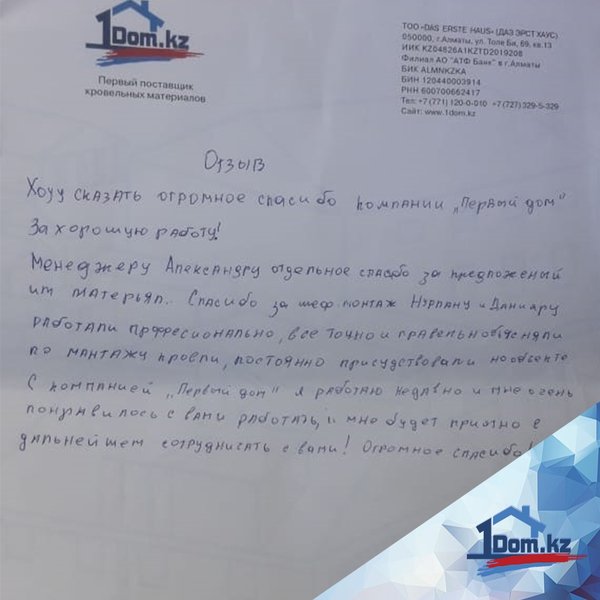 1Dom.kz
Первый поставщик
кровельных материалов
ТОО «DAS ERSTE HAUS» (ДАЗ ЭРСТ ХАУС)
050000, г.Алматы, ул. Толе Би, 69, кв.13
ИИК KZ04826A1KZTD2019208
Филиал АО "АТФ Банк" в г.Алматы
БИК ALMNKZKA
БИН 120440003914
РНН 600700662417
Тел: +7 (771) 120-0-010 +7 (727) 329-5-329
Сайт: www.1dom.kz
Отзыв
Хочу сказать огромное спасибо компании „Первый дом"
За хорошую работу!
Менеджеру Александру отдельное спасибо за предложеный
им матерьял. Спасибо за шеф монтаж Нурлану и Данияру
работали професионально, все точно и правельно обясняли
по мантажу кровли, постоянно присудствовали на обекте
С компанией „Первый дом" я работаю недавно и мне очень
понравилось с вами работать, и мне будет приятно в
дальнейшем сотруднисать с вами! Огромное спасибо!
1Dom.kz